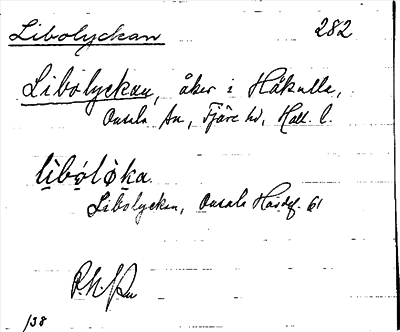 Libolyckan 282
Libolyckan, åker i Håkulla,
Onsala sn, Fjäre hd, Hall. l.
lìbolø̀ka.
Libolyckan, Onsala Hasdgf. 61
138